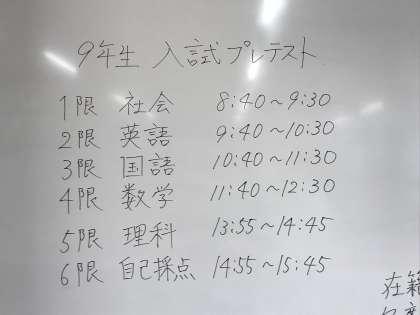 9年生 入試プレテスト
1限 社会 8:40～9:30
2限 英語 9:40～10:30
3限 国語 10:40～11:30
4限 数学 11:40～12:30
5限 理科 13:55～14:45
6限 自己採点 14:55～15:45
在籍